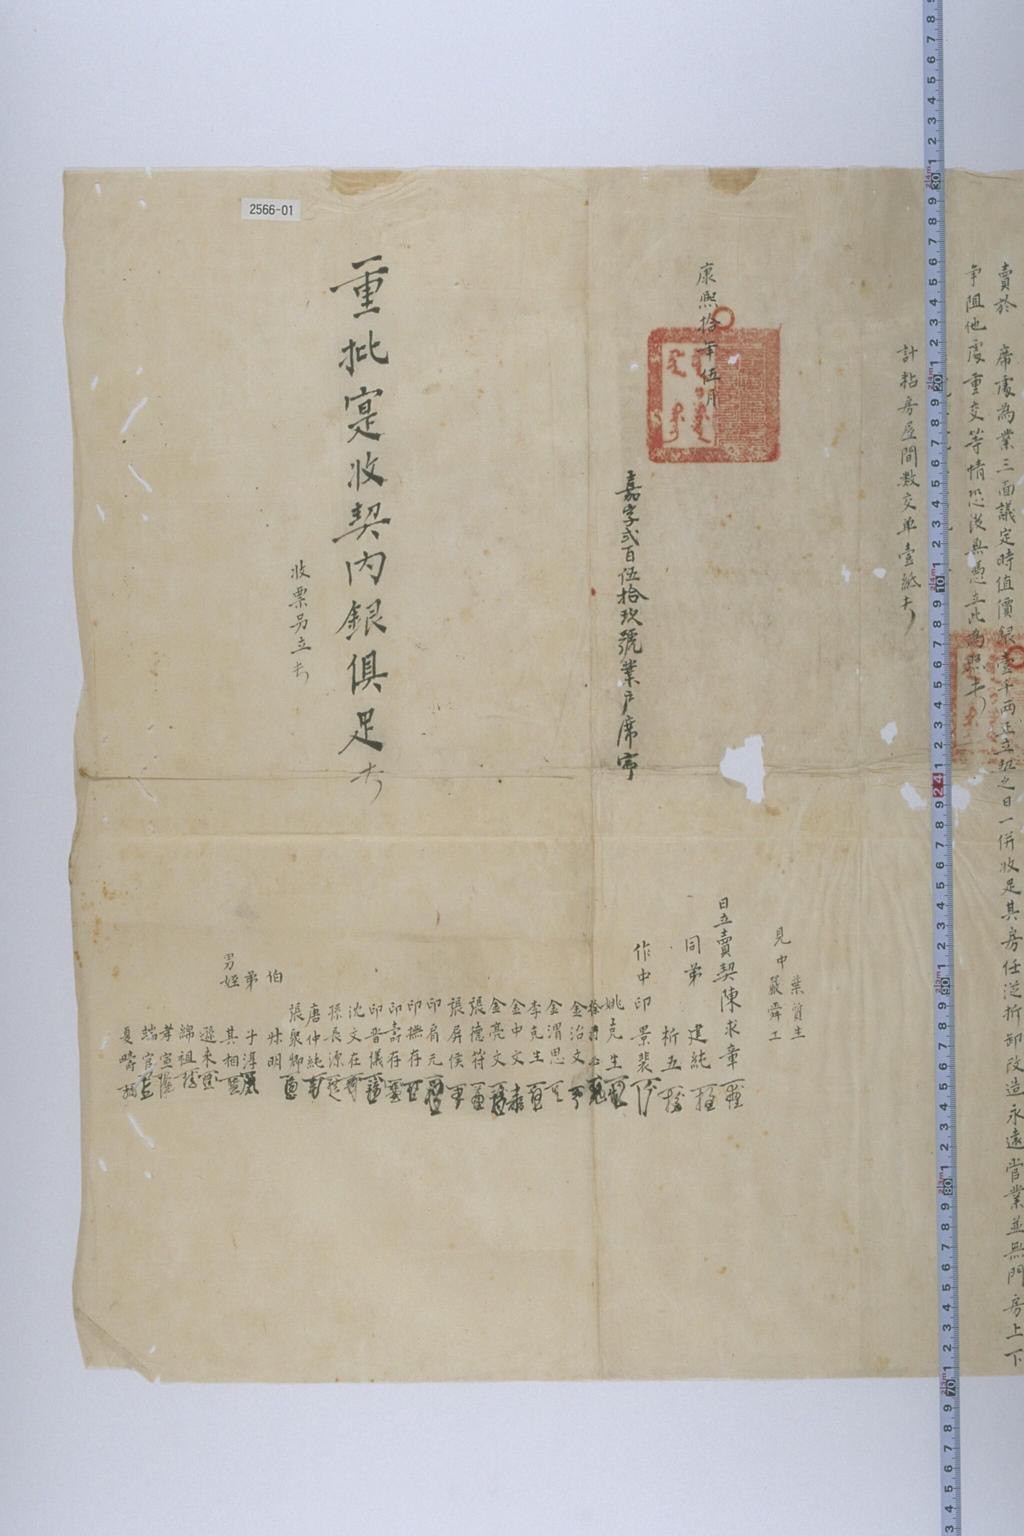 賣於　席處為業三面議定時值價銀壹千兩正立契之日一併收足其房任從拆卸改造永遠管業並無門房上下
爭阻他處重交等情恐後無憑立此為照
計粘房屋間數交单壹紙
康熙拾年伍月
日立賣契陳求章
同弟　建純
析五
見中
葉質生
嚴舜工
作中印景裴
姚克生
金治文
金渭思
李克生
金中文
金亮文
張德符
張屏侯
印肩元
印撫存
印壽存
印晋儀
沈文在
孫辰源
唐仲純
張聚卿
伯
弟
男
姪
其相
遜來
綿祖
孝宣
端官
夏疇
嘉字貳百伍拾玖號業户席寧
重批寔收契内銀俱足
收票另立
2566-01